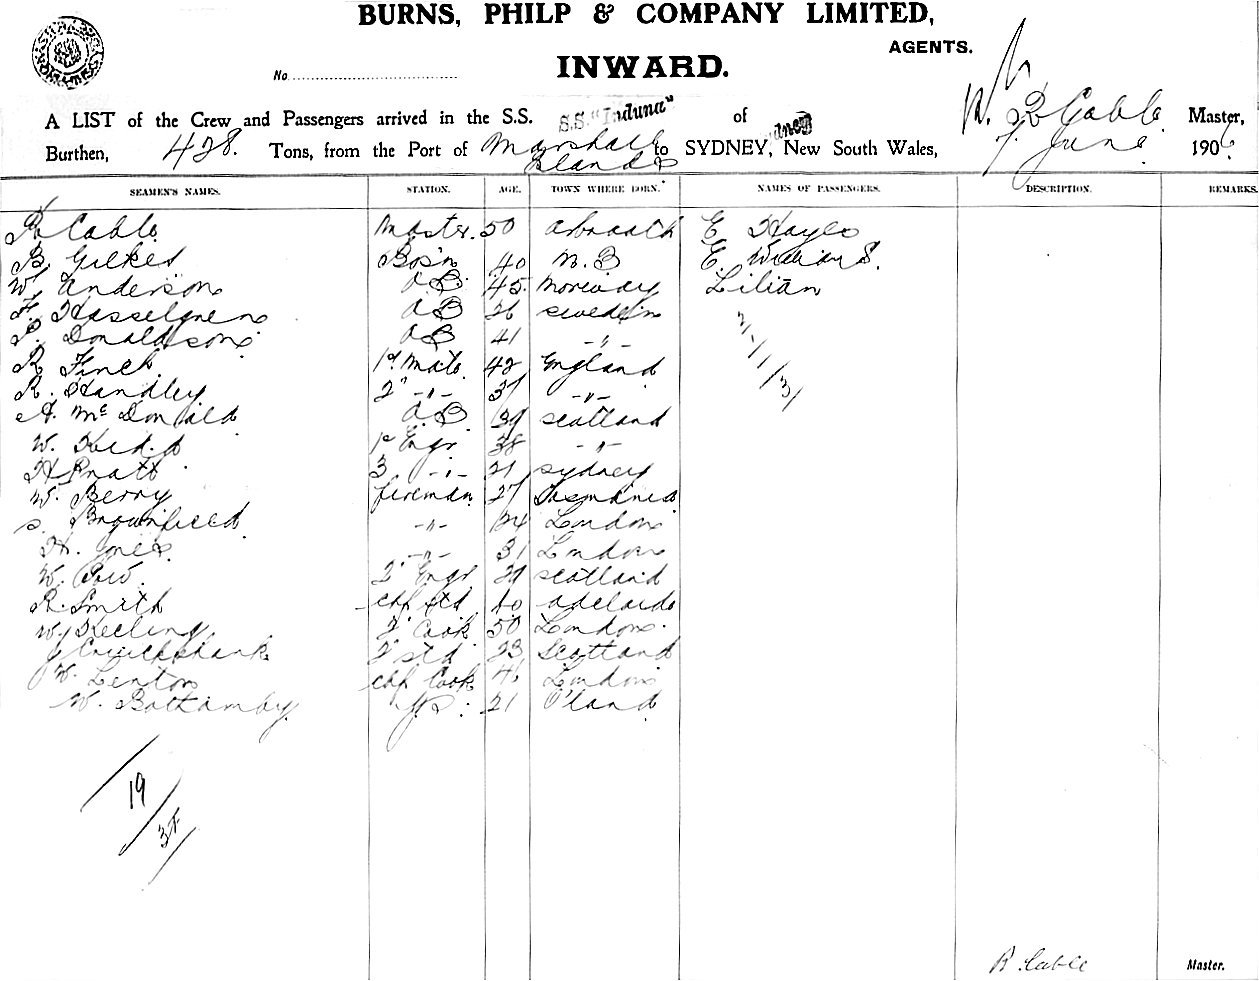 BURNS, PHILP & COMPANY LIMITED,
AGENTS.
No.
INWARD.
A LIST of the Crew and Passengers arrived in the S.S. S.S. "Induna" of R. Cable Master,
Burthen, 428. Tons, from the Port of Marshall Islands to SYDNEY, New South Wales, 7 June 1906
SEAMEN'S NAMES. STATION. AGE. TOWN WHERE BORN. NAMES OF PASSENGERS. DESCRIPTION. REMARKS.
R Cable Master. 50 Arbroath E Hayes
B Gilkes Bos'n 40 N. B E. Williams.
W Anderson A B 45 Norway Lilian
F. Hasselgren A B 26 Sweden
P. Donaldson A B 41 -"-
R Finch 1st Mate 42 England
R. Handley 2" -"- 37 -"-
A. McDonald A. B 39 Scotland
W. Kidd 1st Engr 38 -"-
H Pratt 3 -"- 21 Sydney
W. Berry fireman 27 Tasmania
S. Brownfield -"- 24 London
H. Jones -"- 31 London
W. 2" Engr 29 Scotland
R. Smith chf std 40 Adelaide
W. Keeling 2" Cook 50 London.
J Cruickshank 2" std 23 Scotland
W. Lenton chf Cook 46 London
W. Bottamby 21 Q'land
19
R Cable Master.